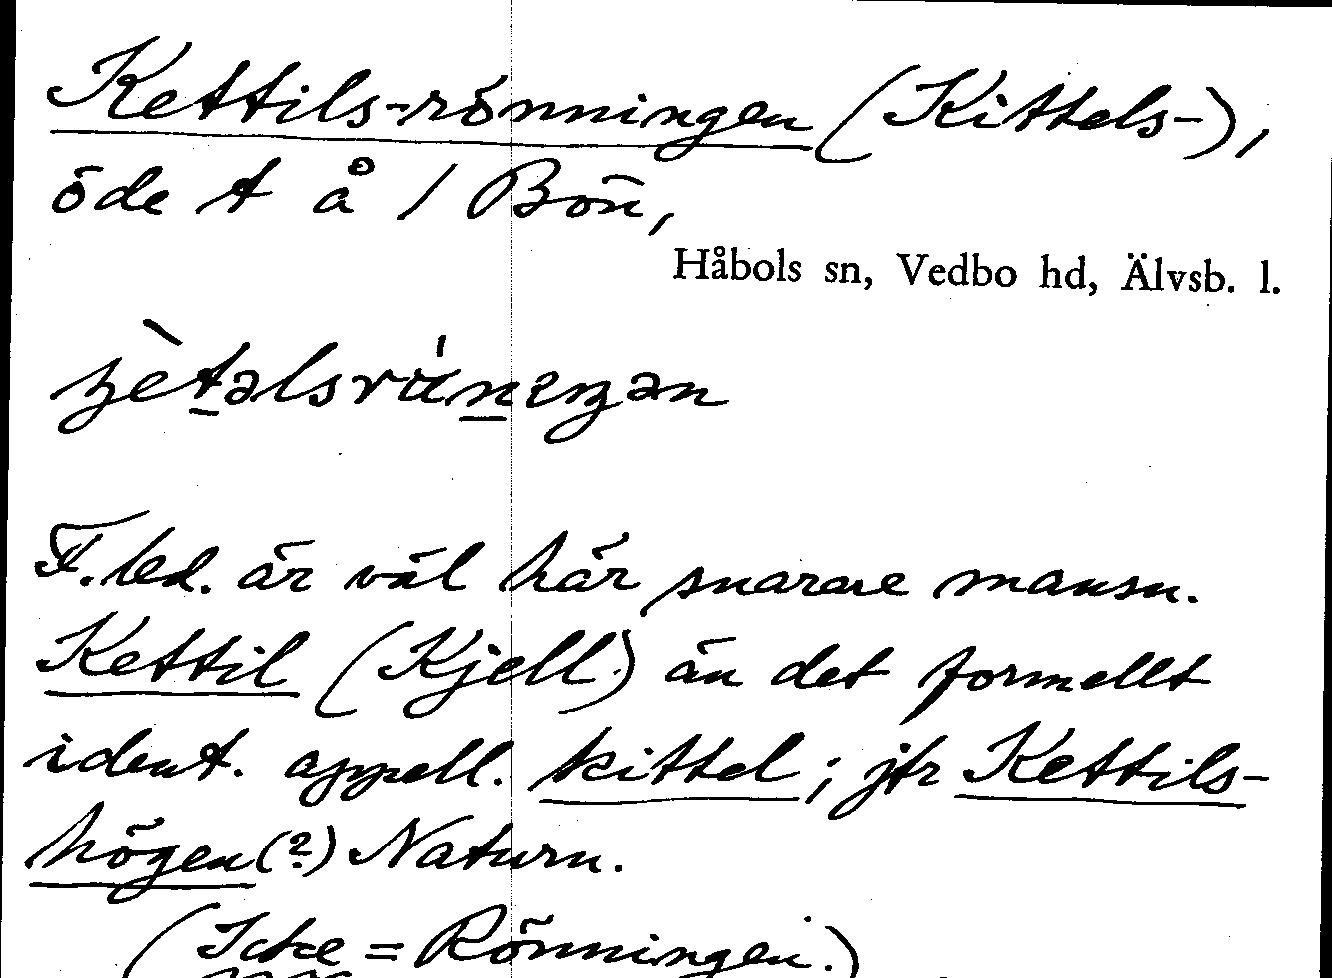 Kettils-rönningen (Kittels-),
öde t å 1 Bön,
Håbols sn, Vedbo hd, Älvsb. l.
F. led. är väl här snarare mansn.
Kettil (Kjell) än det formellt
ident. appell. kittel; jfr Kettils-
högen(?) Naturn.
(Icke = Rönningen.)